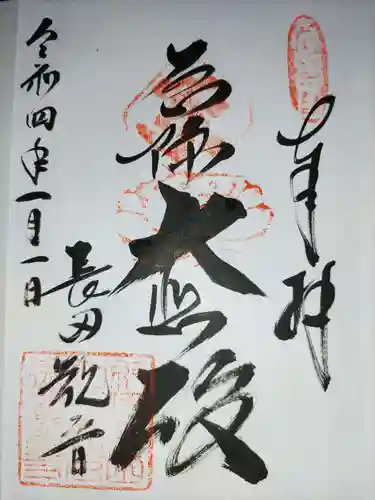 奉拝
厄除 大悲殿
長田観音
令和四年一月一日